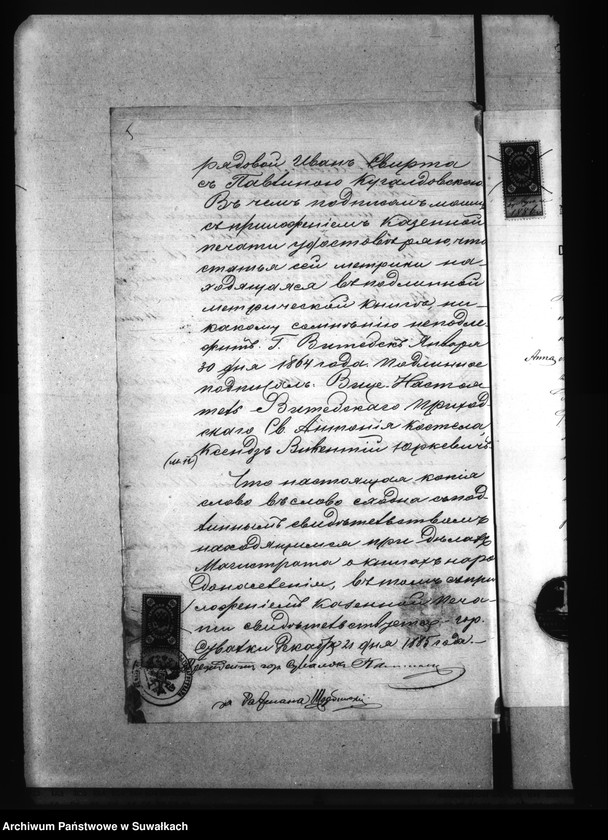 рядовой Иванъ Свирта
съ Павлиною Кугалдовскою
Въ чемъ подписомъ моимъ
съ приложеніемъ казенной
печати удостовѣряю, что
статья сей метрики на-
ходящаяся въ подлинной
метрической книгѣ, ни-
какому сомнѣнію неподле-
житъ. Г. Витебскъ Января
30 дня 1864 года. Подлинное
подписалъ Вице-Настоя-
тель Витебскаго Приход-
скаго Св. Антонія костела
Ксендзъ Викентій Юркевичъ
(М.П.)
Что настоящая копія
слово въ слово сходна съ под-
линнымъ свидѣтельствомъ
находящимся при дѣлахъ
Магистрата о книгахъ наро-
донаселенія, въ томъ съ при-
ложеніемъ казенной печа-
ти свидѣтельствуетъ. гор.
Сувалки Декабря 21 дня 1885 года.
гор. Сувалокъ
за Ратмана
1886
Анна
Archiwum Państwowe w Suwałkach